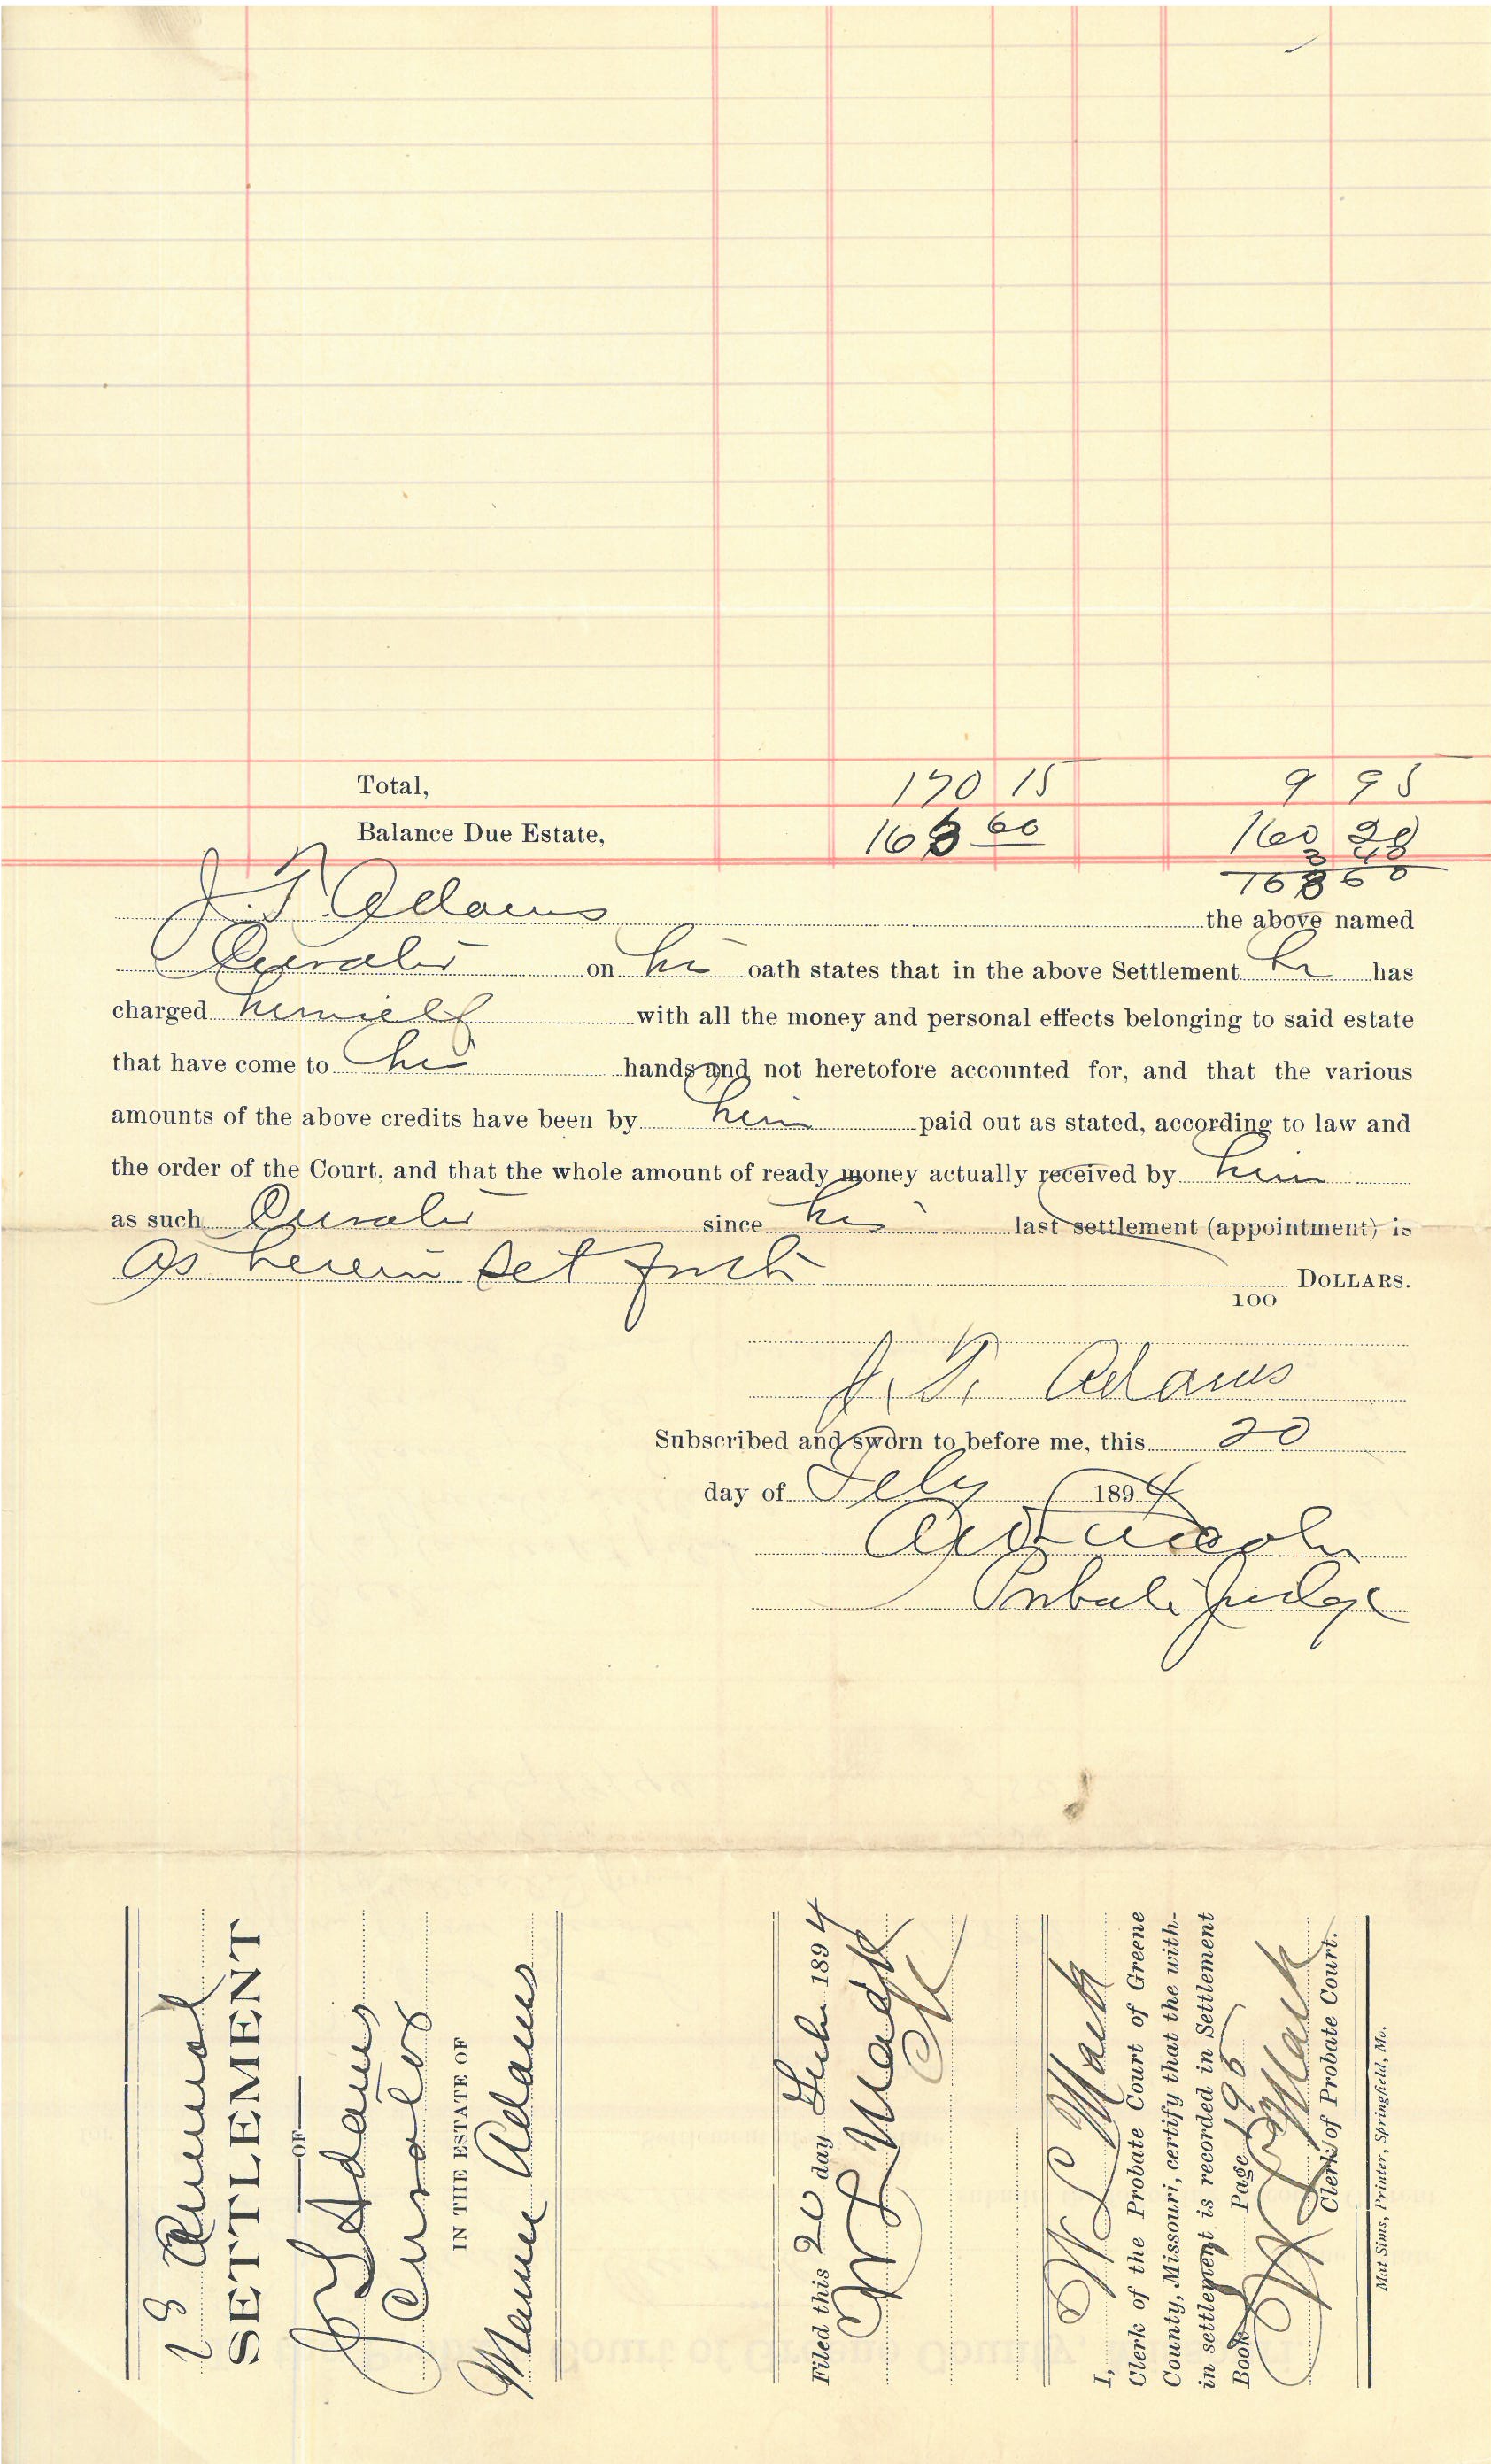 Total, 170 15 9 95
Balance Due Estate, 168 60 160 20
168 60
J. T. Adams the above named
Curator on his oath states that in the above Settlement he has
charged himself with all the money and personal effects belonging to said estate
that have come to his hands and not heretofore accounted for, and that the various
amounts of the above credits have been by him paid out as stated, according to law and
the order of the Court, and that the whole amount of ready money actually received by him
as such Curator since his last settlement (appointment) is
as herein set forth DOLLARS.
100
J. T. Adams
Subscribed and sworn to before me, this 20
day of Feby 1894
Probate Judge
Annual
SETTLEMENT
OF
J T Adams
Curator
IN THE ESTATE OF
Mamie Adams
Filed this 20 day Feb. 1894
W L Mack
Clk
I, W L Mack
Clerk of the Probate Court of Greene
County, Missouri, certify that the with-
in settlement is recorded in Settlement
Book Page 195
W L Mack
Clerk of Probate Court.
Mat Sims, Printer, Springfield, Mo.